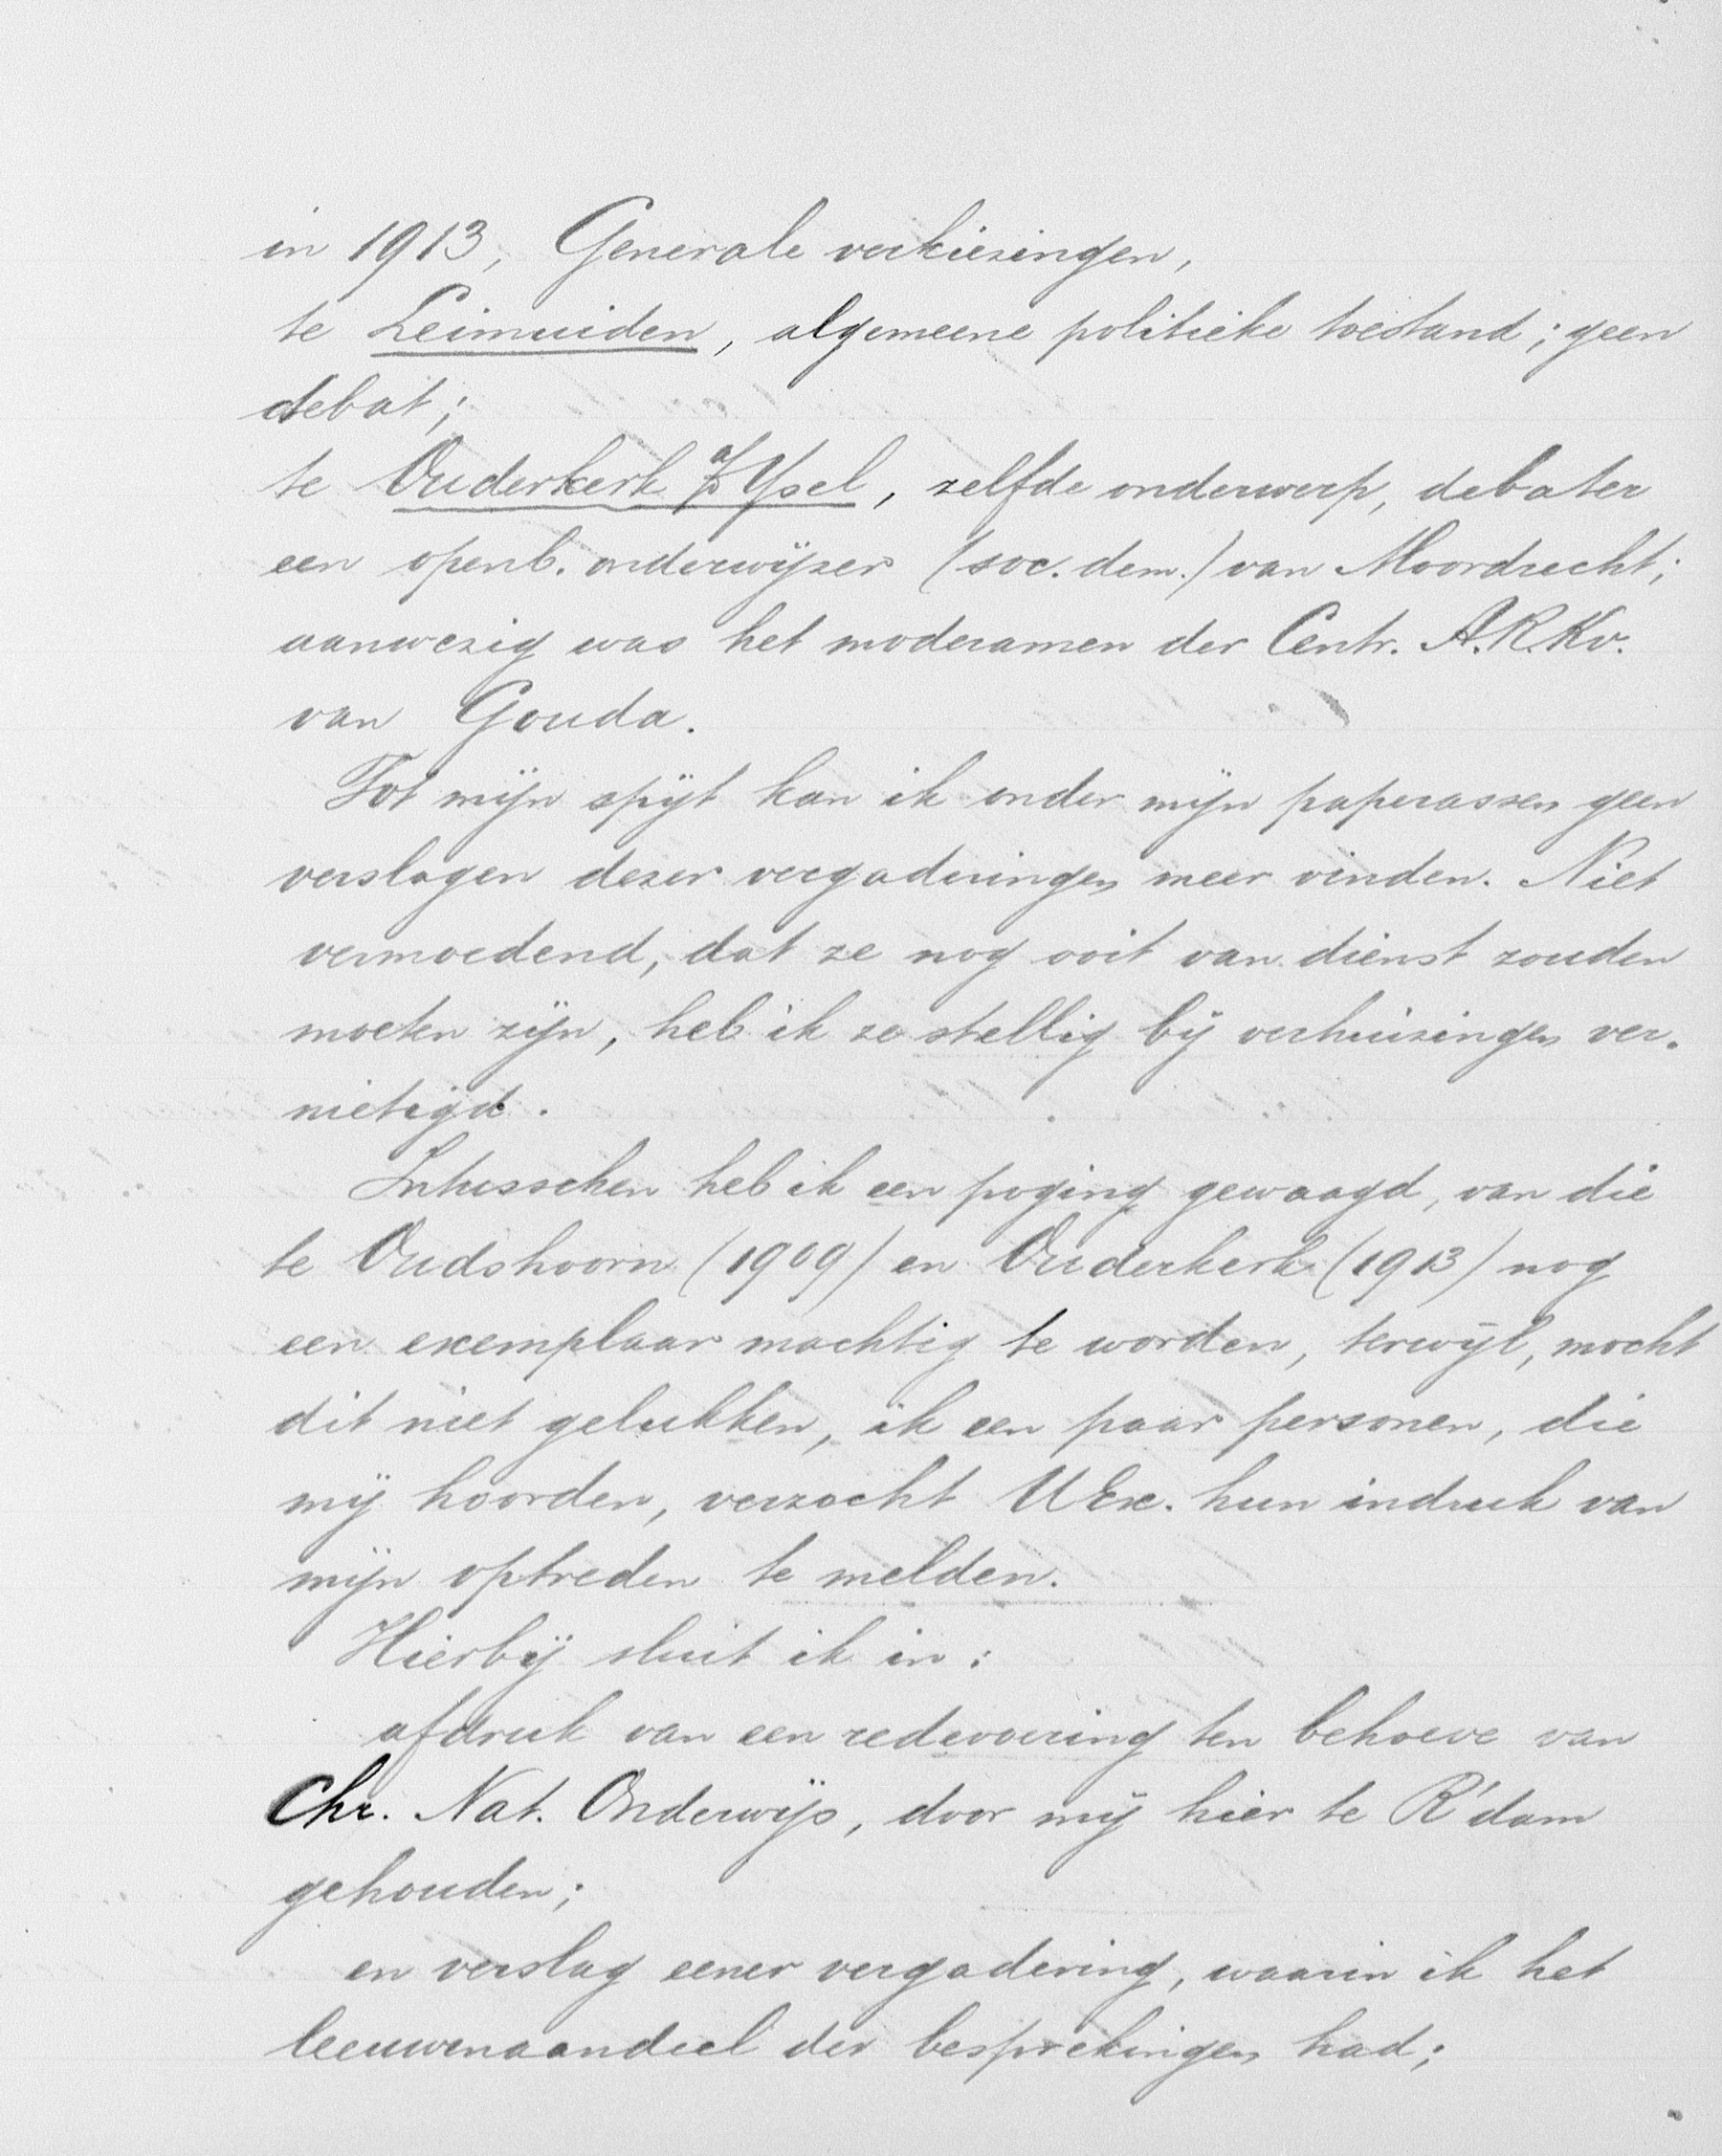 in 1913, Generale verkiezingen,
te Leimuiden, algemeene politieke toestand; geen
debat;
te Ouderkerk a/d Ysel, zelfde onderwerp, debater
een openb. onderwijzer (soc. dem.) van Moordrecht;
aanwezig was het moderamen der Centr. A.R.Kv.
van Gouda.
Tot mijn spijt kan ik onder mijn paperassen geen
verslagen dezer vergaderingen meer vinden. Niet
vermoedend, dat ze nog ooit van dienst zouden
moeten zijn, heb ik ze stellig bij verhuizingen ver-
nietigd.
Intusschen heb ik een poging gewaagd, van die
te Oudshoorn (1909) en Ouderkerk (1913) nog
een exemplaar machtig te worden, terwijl, mocht
dit niet gelukken, ik een paar personen, die
mij hoorden, verzocht UExc. hun indruk van
mijn optreden te melden.
Hierbij sluit ik in:
afdruk van een redevoering ten behoeve van
Chr. Nat. Onderwijs, door mij hier te R'dam
gehouden;
en verslag eener vergadering, waarin ik het
leeuwenaandeel der besprekingen had;